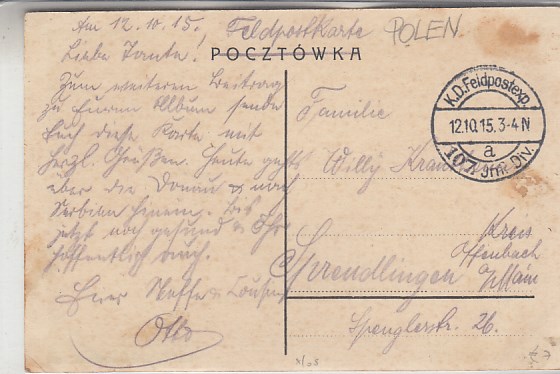 Am 12.10.15.
Feldpostkarte
POLEN
Liebe Tante!
POCZTÓWKA
Zum weiteren Beitrag
zu Eurem Album sende
Euch diese Karte mit
herzl. Grüßen. Heute geht's
über die Donau & nach
Serbien hinein. Bis
jetzt noch gesund &
hoffentlich auch.
Euer Neffe &
Otto
K.D.Feldpostexp.
12.10.15.3-4N
a
107. Inf. Div.
Familie
Willy
Kreis
Offenbach
a/Main
Sprendlingen
Spenglerstr. 26.